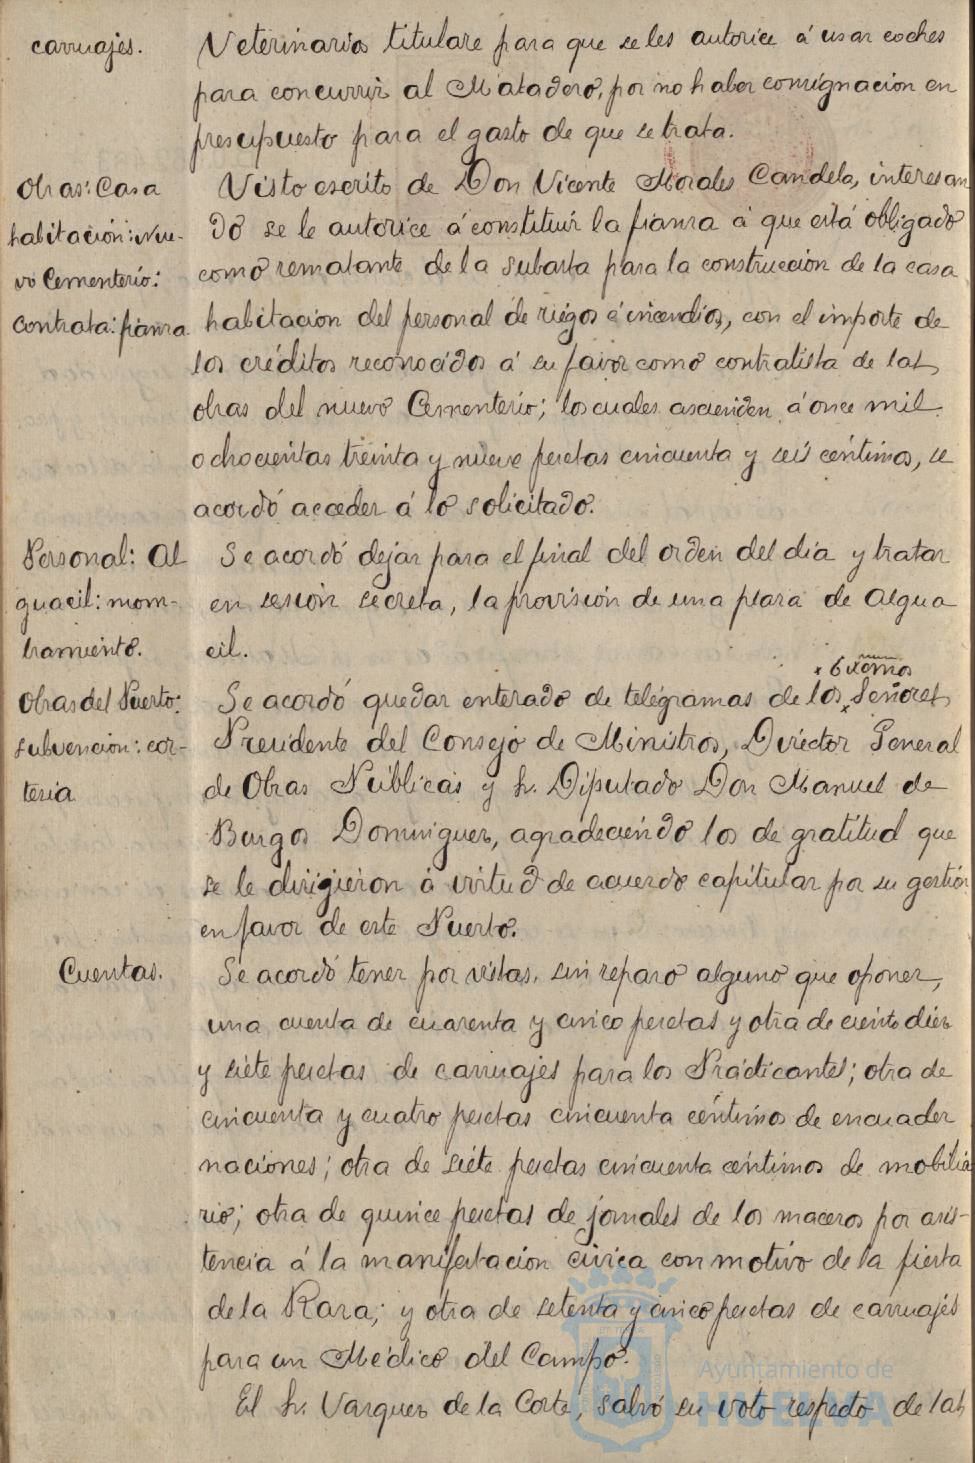 carruajes.
Veterinarios titulare para que se les autorice á usar coches
para concurrir al Matadero, por no haber consignacion en
presupuesto para el gasto de que se trata.
Obras: Casa
habitación: Nue-
vo Cementerio:
contrata: fianza
Visto escrito de Don Vicente Morales Candela, interesan
do se le autorice á constituir la fianza á que está obligado
como rematante de la subasta para la construccion de la casa
habitacion del personal de riegos é incendios, con el importe de
los créditos reconocidos á su favor como contratista de las
obras del nuevo Cementerio; los cuales ascienden á once mil
ochocientas treinta y nueve pesetas cincuenta y seis céntimos, se
acordó acceder á lo solicitado.
Personal: Al
guacil: nom-
bramiento.
Se acordó dejar para el final del orden del dia y tratar
en sesion secreta, la provisión de una plaza de Algua
cil.
Obras del Puerto:
subvencion: cor-
tesia
x Exemos
Se acordó quedar enterado de telégramas de los x Señores
Presidente del Consejo de Ministros, Director General
de Obras Públicas y Sr. Diputado Don Manuel de
Burgos Dominguez, agradeciendo los de gratitud que
se le dirigieron á virtud de acuerdo capitular por su gestión
en favor de este Puerto.
Cuentas.
Se acordó tener por vistas, sin reparo alguno que oponer,
una cuenta de cuarenta y cinco pesetas y otra de ciento diez
y siete pesetas de carruajes para los Practicantes; otra de
cincuenta y cuatro pesetas cincuenta céntimos de encuader
naciones; otra de siete pesetas cincuenta céntimos de mobilia
rio; otra de quince pesetas de jornales de los maceros por asis-
tencia á la manifestacion civica con motivo de la fiesta
de la Raza; y otra de setenta y cinco pesetas de carruajes
para un Médico del Campo.
El Sr. Vazquez de la Corte, salvó su voto respecto de las
Ayuntamiento de
HUELVA